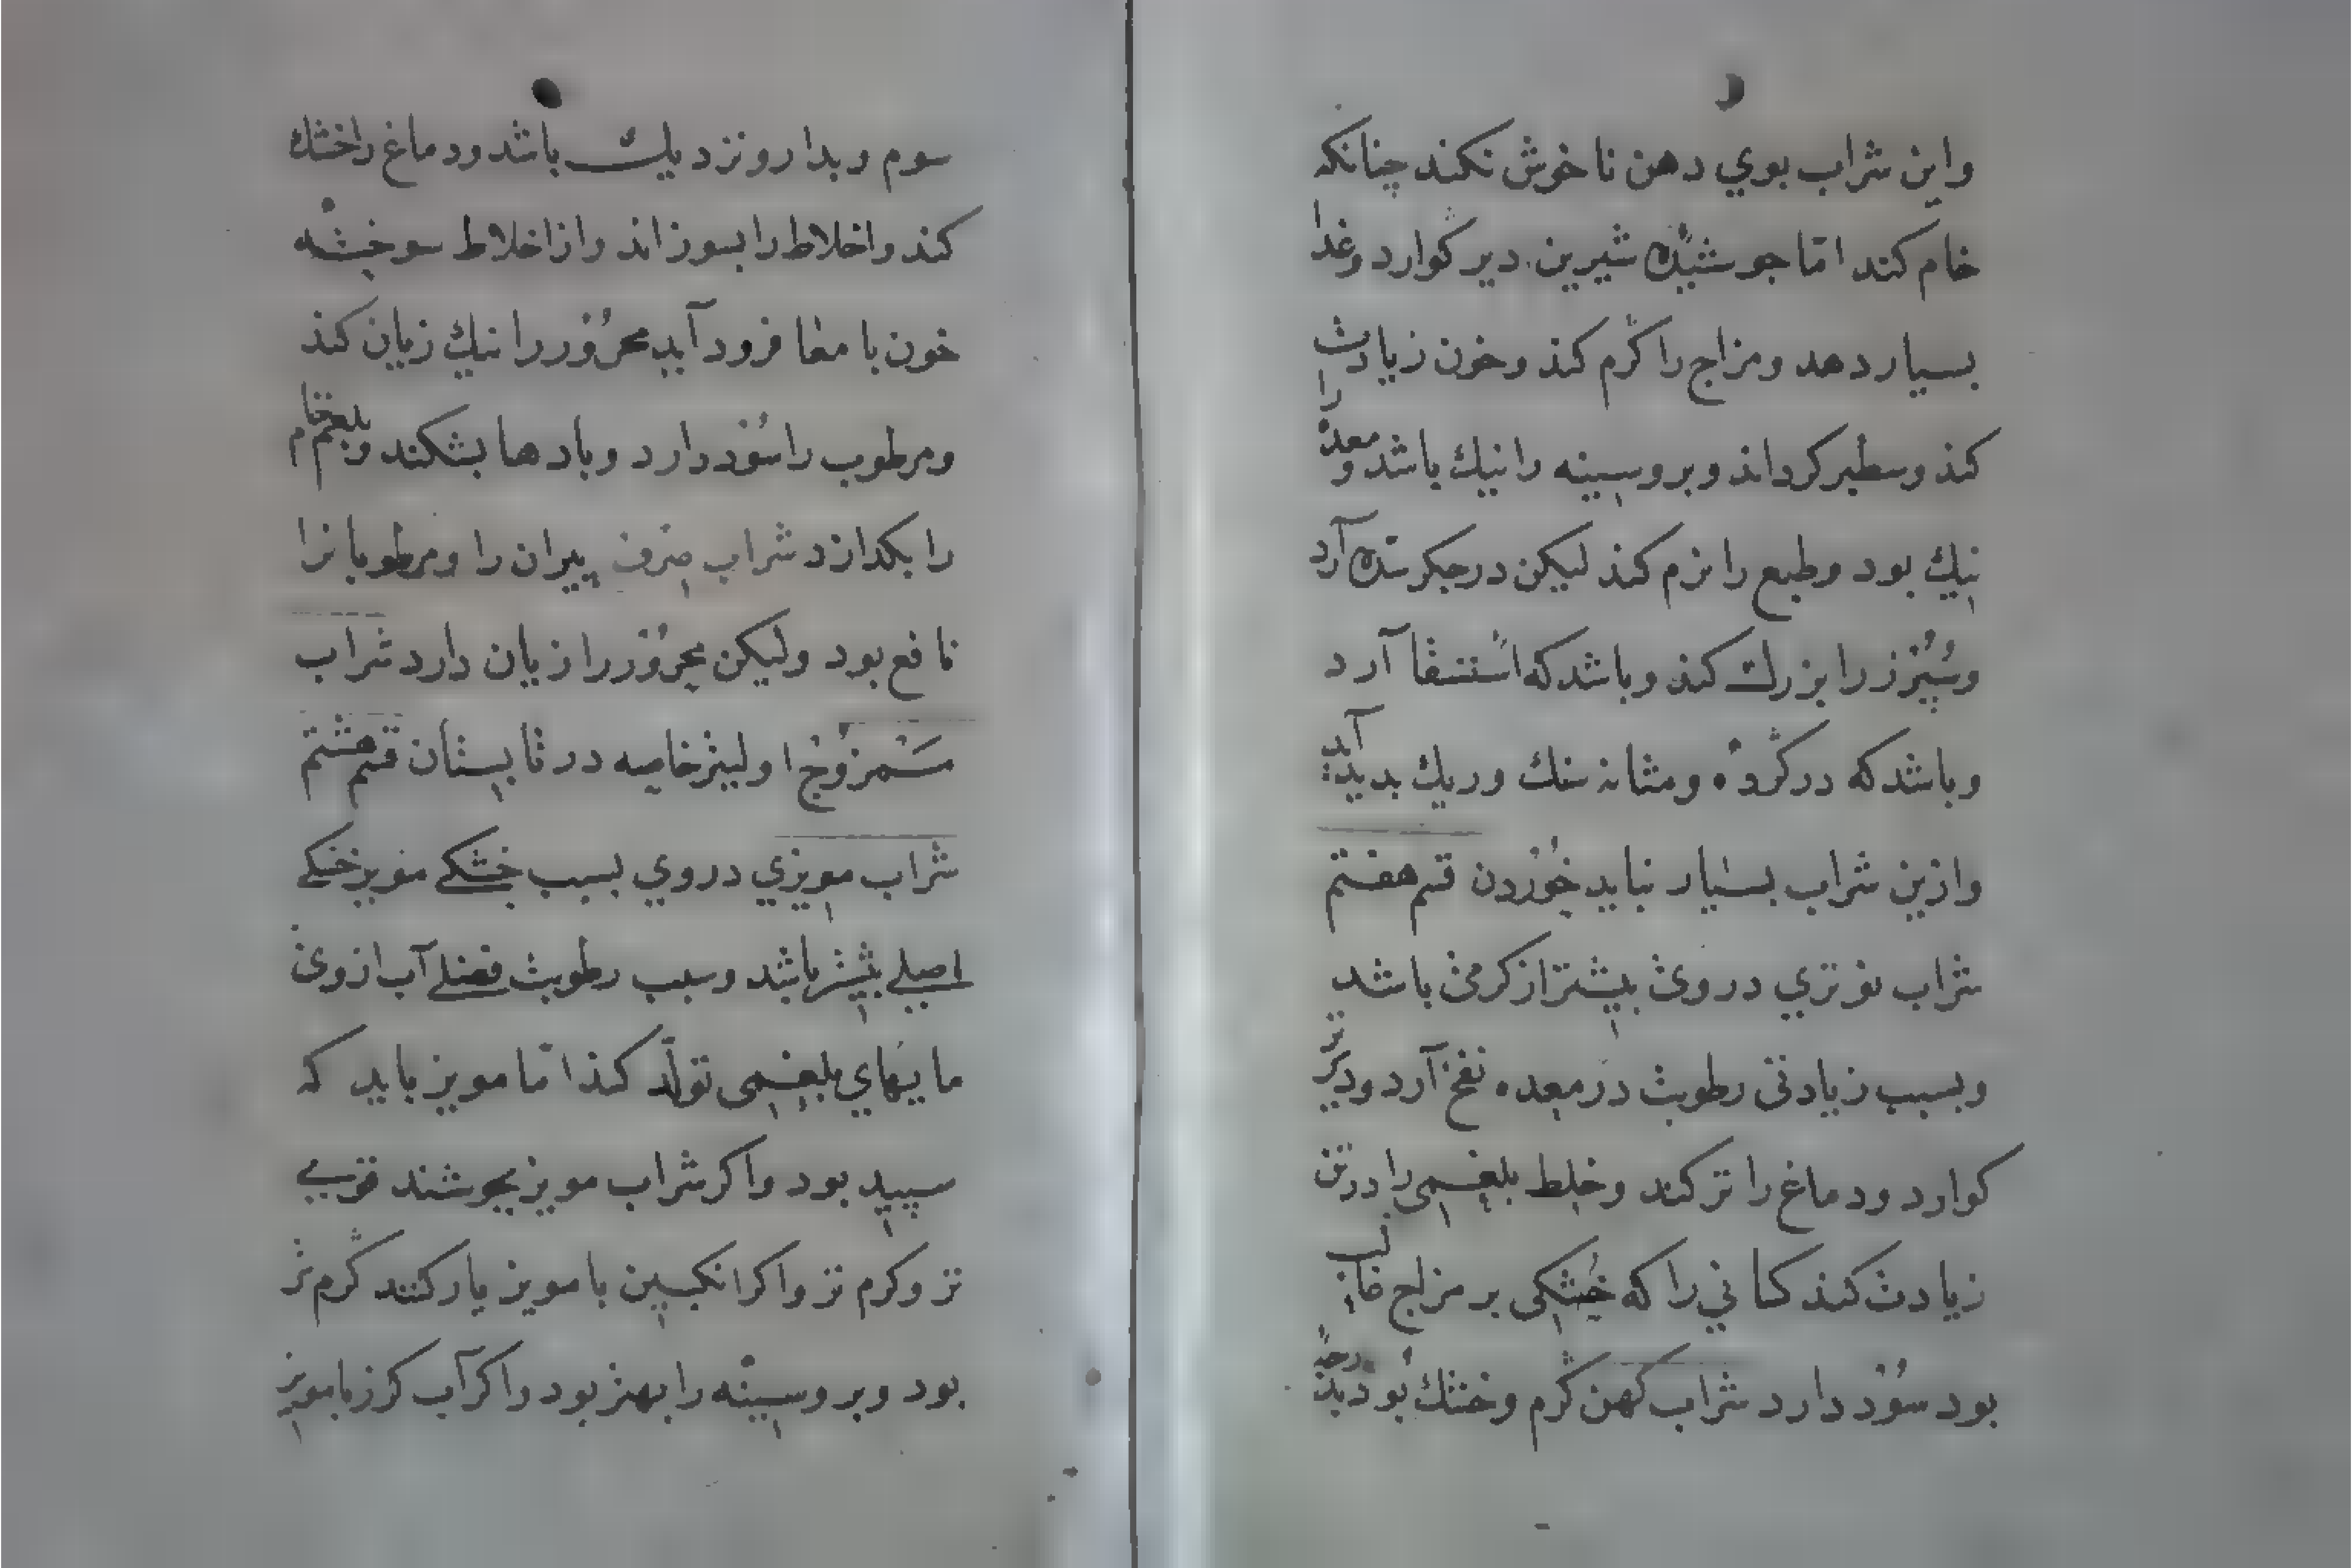 واين شراب بوي دهن ناخوش نكند چنانكه
خام كند امّا جوشيذه شيرين دير كوارد وغذا
بسيار دهد ومزاج را كرم كند وخون زيادت
كند وسطبر كرداند وبر وسينه را نيك باشد ومعده را
نيك بود وطبع را نرم كند ليكن در جكر سده آرد
وسُپُرْز را بزرك كند وباشد كه استسقا آرد
وباشد كه در كرده ومثانه سنك وريك بديد آيد
وازين شراب بسيار نبايد خُوردن قسم هفتم
شراب نو تري در وى بيشتر از كرمى باشد
وبسبب زيادتى رطوبت در معده نفخ آرد وديرتر
كوارد ودماغ را تر كند وخلط بلغمى را در تن
زيادت كند كسانى را كه خشكى بر مزاج غالب
بود سُوْد دارد شراب كهن كرم وخشك بُود بدرجه
سوم وبدارو نزديك باشد ودماغ را خشك
كند واخلاط را بسوزاند واز اخلاط سوخته
خون با معا فرود آيد محرُوْر را نيك زيان كند
ومرطوب را سُوْد دارد وبادها بشكند وبلغم خام
را بكدازد شراب صرف پيران را ومرطوبانرا
نافع بود وليكن محرُوْر را زيان دارد شراب
ممزُوْج اوليتر خاصه در تابستان قسم هشتم
شراب مويزي در وي بسبب خشكى مويز خشكى
اصلى بيشتر باشد وسبب رطوبت فضلى آب از وى
ماييهاي بلغمى تولّد كند امّا مويز بايد كه
سپيد بود واكر شراب مويز بجوشند قوى
تر وكرم تر واكر انكبين با مويز يار كنند كرم تر
بود وبر وسينه را بهتر بود واكر آب كرز با مويز